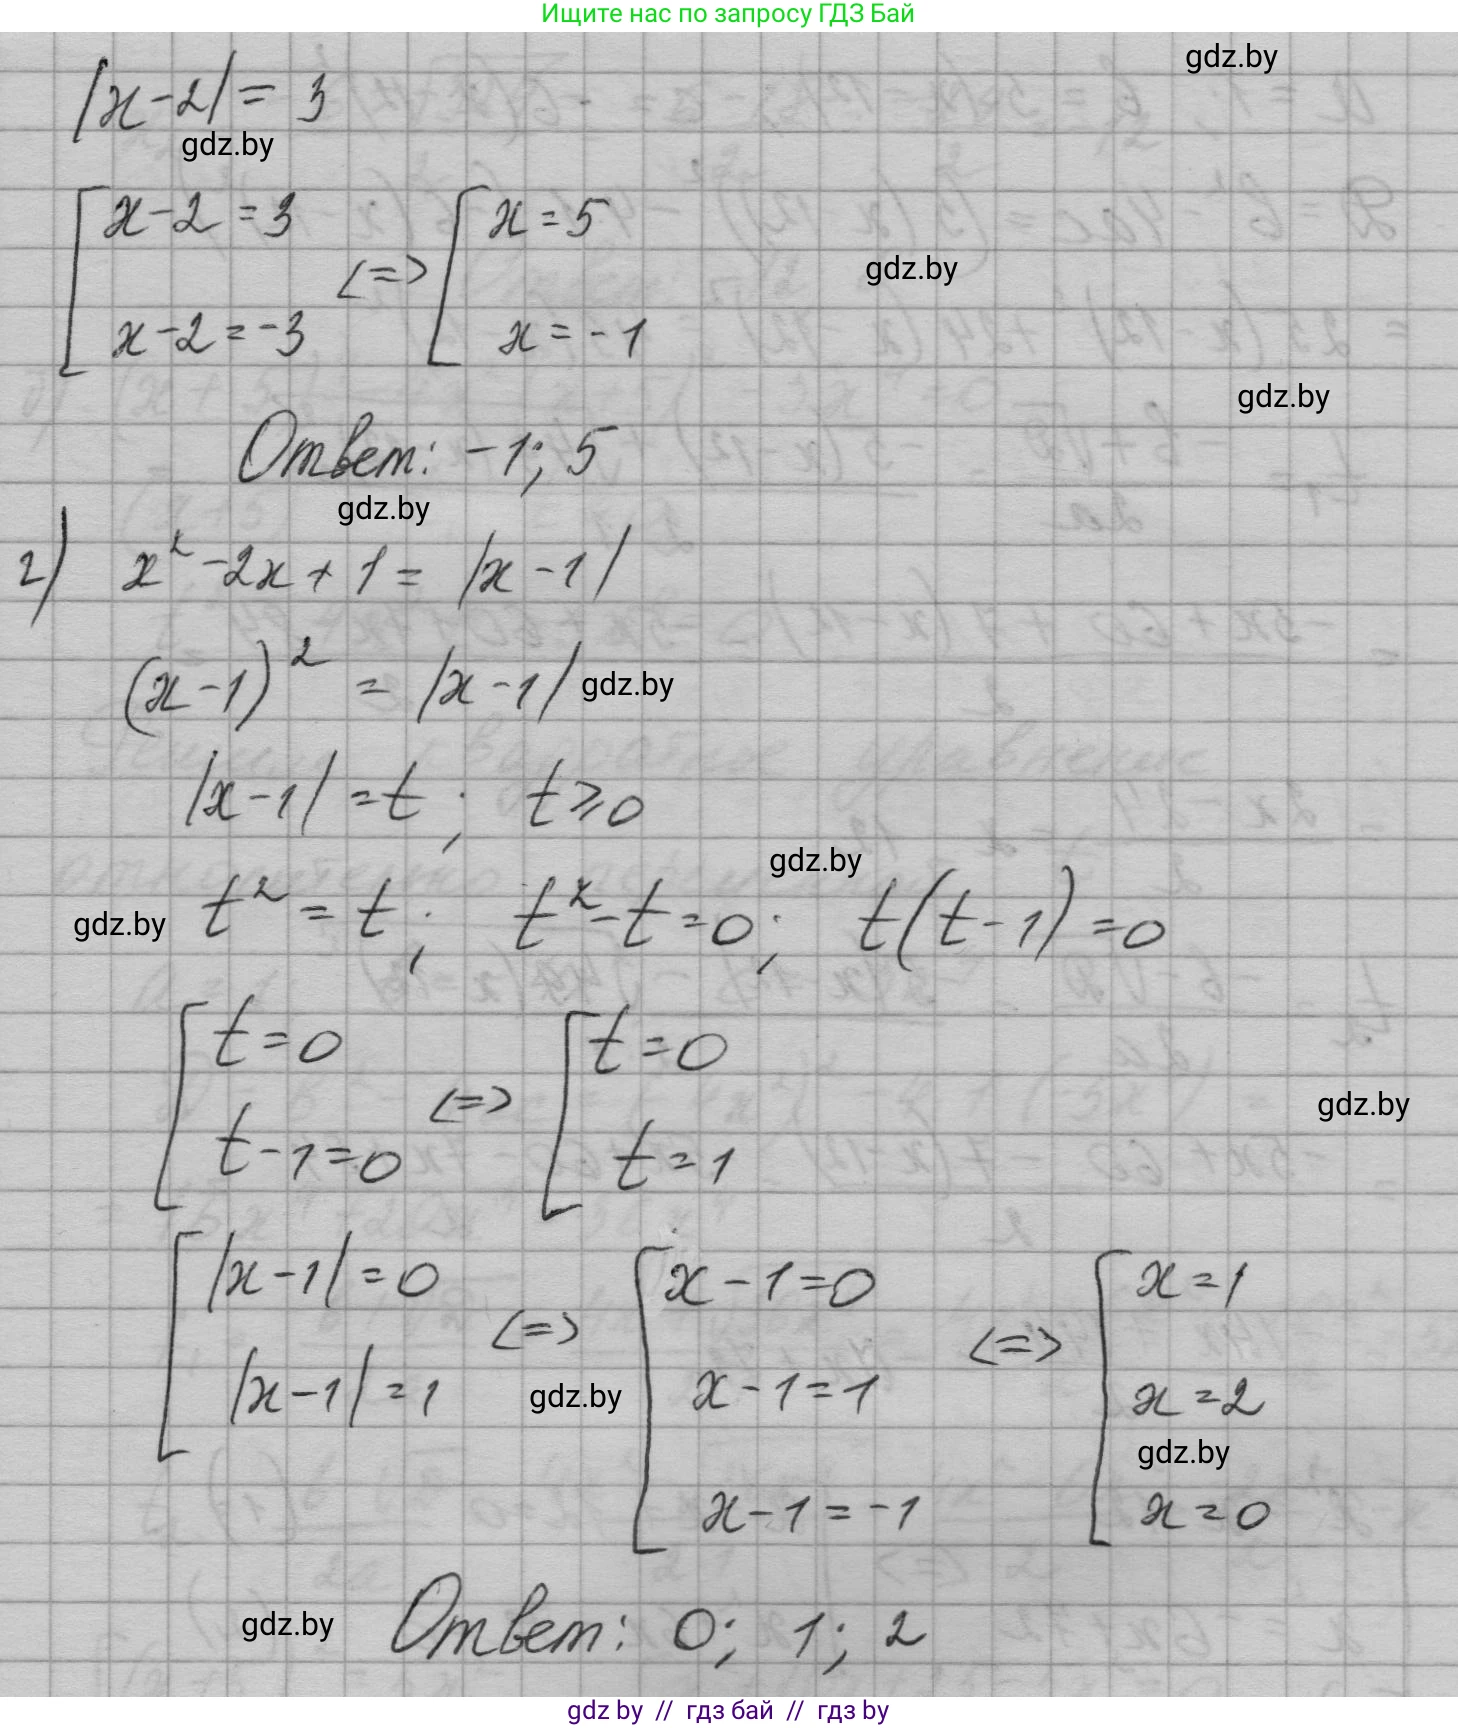 Ищите нас по запросу ГДЗ Бай
gdz.by
|x-2| = 3
gdz.by
x-2=3 <=> x=5
gdz.by
x-2=-3 x=-1
gdz.by
Ответ: -1; 5
gdz.by
г) x²-2x+1=|x-1|
(x-1)² = |x-1| gdz.by
|x-1|=t; t≥0
gdz.by
gdz.by t²=t; t²-t=0; t(t-1)=0
t=0 <=> t=0
gdz.by
t-1=0 t=1
|x-1|=0 <=> x-1=0 <=> x=1
|x-1|=1 gdz.by x-1=1 x=2
gdz.by
x-1=-1 x=0
gdz.by Ответ: 0; 1; 2
gdz by // гдз бай // гдз by